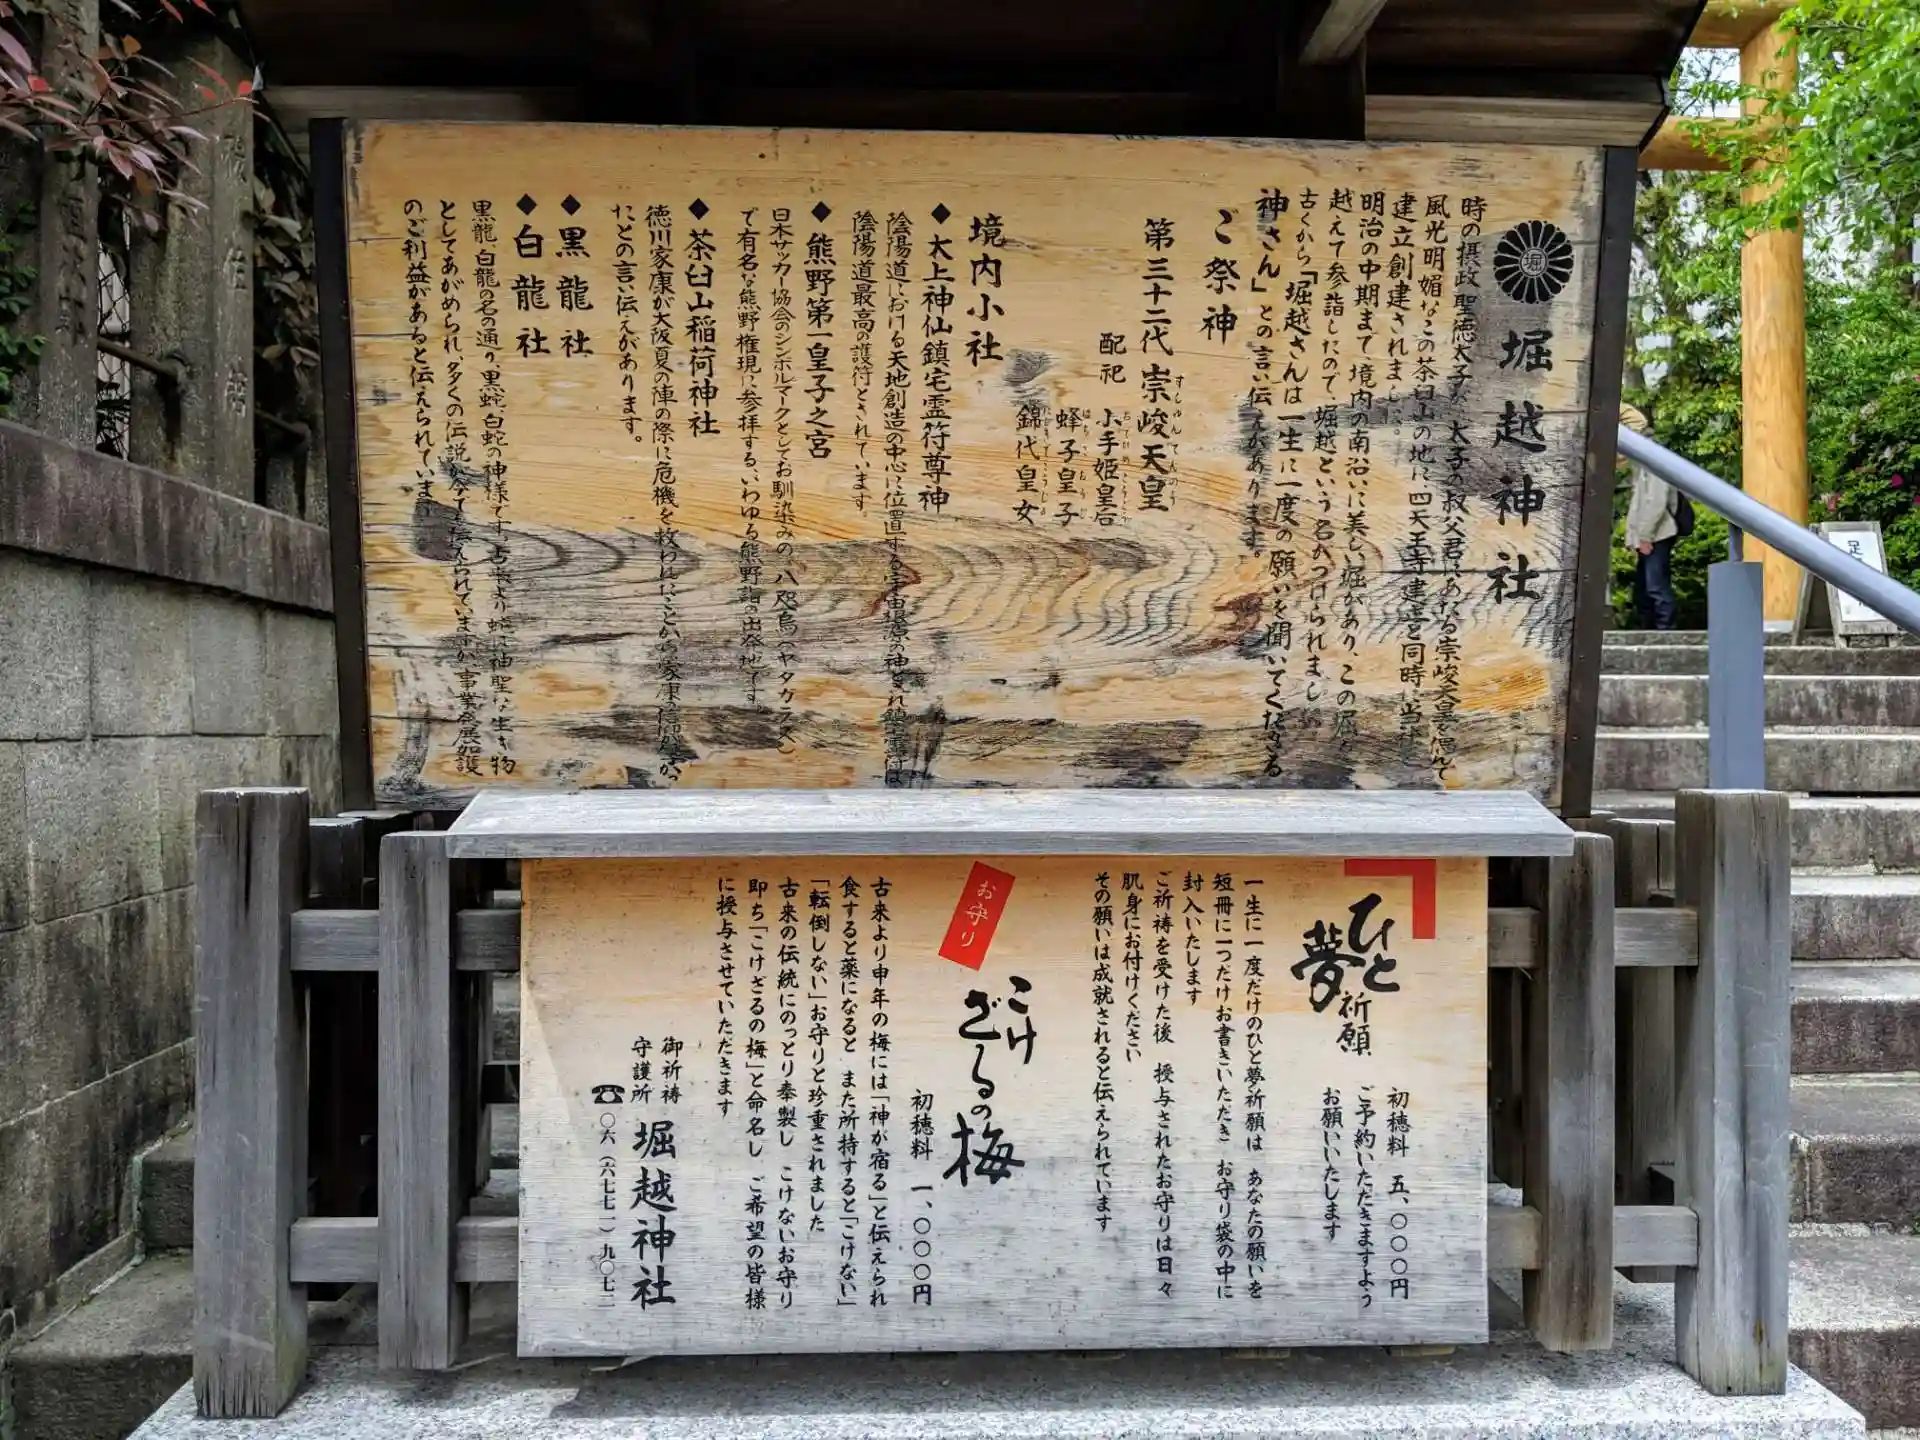 堀越神社
時の摂政 聖徳太子が、太子の叔父君にあたる崇峻天皇を偲んで
風光明媚なこの茶臼山の地に 四天王寺建立と同時に当社
建立創建されました。
明治の中期まで、境内の南沿いに美しい堀があり、この堀を
越えて参詣したので、堀越という名がつけられまし
古くから「堀越さんは一生に一度の願いを聞いてくださる
神さん」との言い伝えがあります。
ご祭神
第三十二代 崇峻天皇
すしゅんてんのう
配祀 小手姫皇后
蜂子皇子
錦代皇女
境内小社
◆太上神仙鎮宅霊符尊神
陰陽道における天地創造の中心に位置する宇宙根源の神とされ 鎮宅霊符は
陰陽道最高の護符とされています。
◆熊野第一皇子之宮
日本サッカー協会のシンボルマークとしてお馴染みの、八咫烏(ヤタガラス)
で有名な熊野権現に参拝する、いわゆる熊野詣の出発地です。
◆茶臼山稲荷神社
徳川家康が大阪夏の陣の際に危機を救われたことから家康の信仰が
たとの言い伝えがあります。
◆黒龍社
◆白龍社
黒龍、白龍の名の通り、黒蛇、白蛇の神様です。古来より蛇は神聖な生き物
としてあがめられ、多くの伝説が今でも伝えられていますが、事業発展加護
のご利益があると伝えられています。
ひと夢祈願
初穂料 五、〇〇〇円
ご予約いただきますよう
お願いいたします
一生に一度だけのひと夢祈願は あなたの願いを
短冊に一つだけお書きいただき お守り袋の中に
封入いたします
ご祈祷を受けた後 授与されたお守りは日々
肌身にお付けください
その願いは成就されると伝えられています
お守り
こけざるの梅
初穂料 一、〇〇〇円
古来より申年の梅には「神が宿る」と伝えられ
食すると薬になると また所持すると「こけない」
「転倒しない」お守りと珍重されました
古来の伝統にのっとり奉製し こけないお守り
即ち「こけざるの梅」と命名し ご希望の皆様
に授与させていただきます
御祈祷
守護所
堀越神社
☎〇六(六七七一)九〇七二